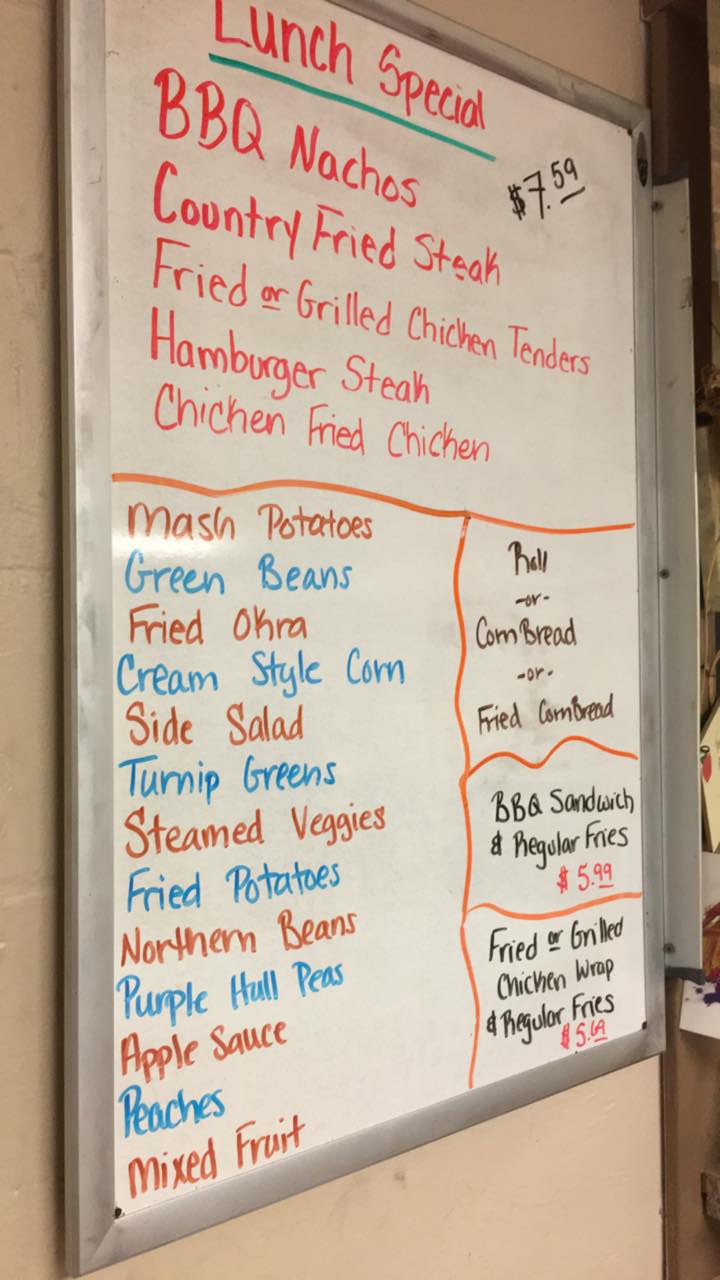 Lunch Special
BBQ Nachos
$7.59
Country Fried Steak
Fried or Grilled Chicken Tenders
Hamburger Steak
Chicken Fried Chicken
Mash Potatoes
Green Beans
Fried Okra
Cream Style Corn
Side Salad
Turnip Greens
Steamed Veggies
Fried Potatoes
Northern Beans
Purple Hull Peas
Apple Sauce
Peaches
Mixed Fruit
Roll
-or-
CornBread
-or-
Fried CornBread
BBQ Sandwich
& Regular Fries
$5.99
Fried or Grilled
Chicken Wrap
& Regular Fries
$5.69